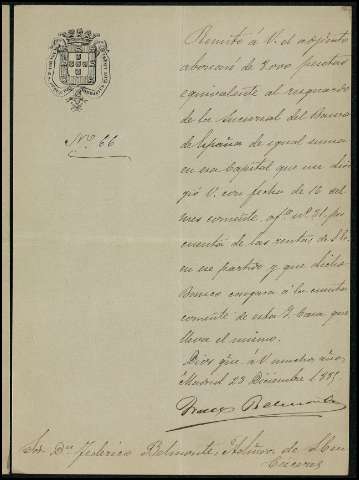 Nº 66
Remito á V. el adjunto
abonaré de 2000 pesetas
equivalente al resguardo
de la Sucursal del Banco
de España de igual suma
en esa Capital que me diri-
gió V. con fecha de 16 del
mes corriente, of.º nº 31, por
cuenta de las rentas de S. E.
en ese partido y que dicho
Banco cargara á la cuenta
corriente de esta I. Casa que
lleva el mismo.
Dios gûe. á V. muchos años,
Madrid 23 Diciembre 1885
Belmonte
Sor Dn Federico Belmonte, Admor. de
Cáceres